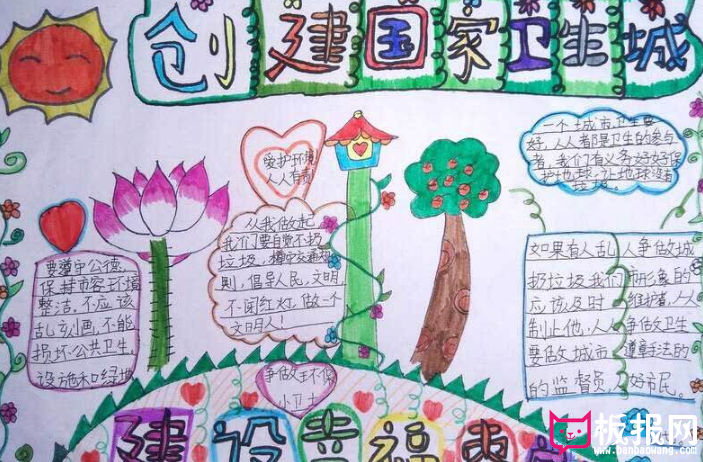 创建国家卫生城
爱护环境
人人有责
一个城市卫生要
好,人人都是卫生的参与
者,我们有义务好好保
护地球,让地球没有
垃圾。
从我做起
我们要自觉不扔
垃圾,遵守交通规
则,倡导人民,文明
不闯红灯,做一个
文明人!
要遵守公德,
保持市容环境
整洁。不应该
乱写乱画,不能
损坏公共卫生,
设施和绿地
如果有人乱
扔垃圾我们
应该及时
制止他,人人
要做城市
的监督员,
人争做城
市形象的
维护者,人人
争做卫生
遵章守法的
好市民。
争做环保
小卫士
建设幸福
板报网
www.banbaowang.com